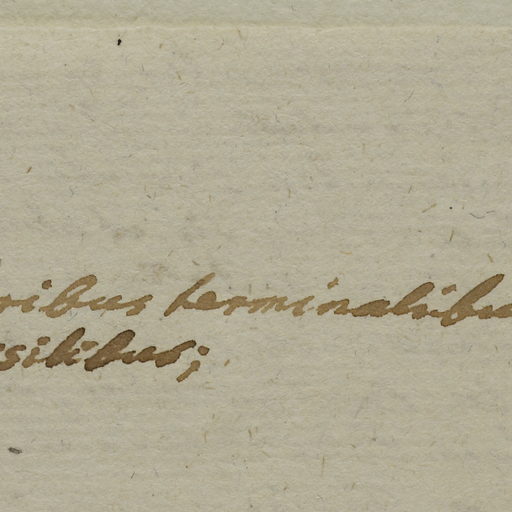 ribus terminalibu
silibus;